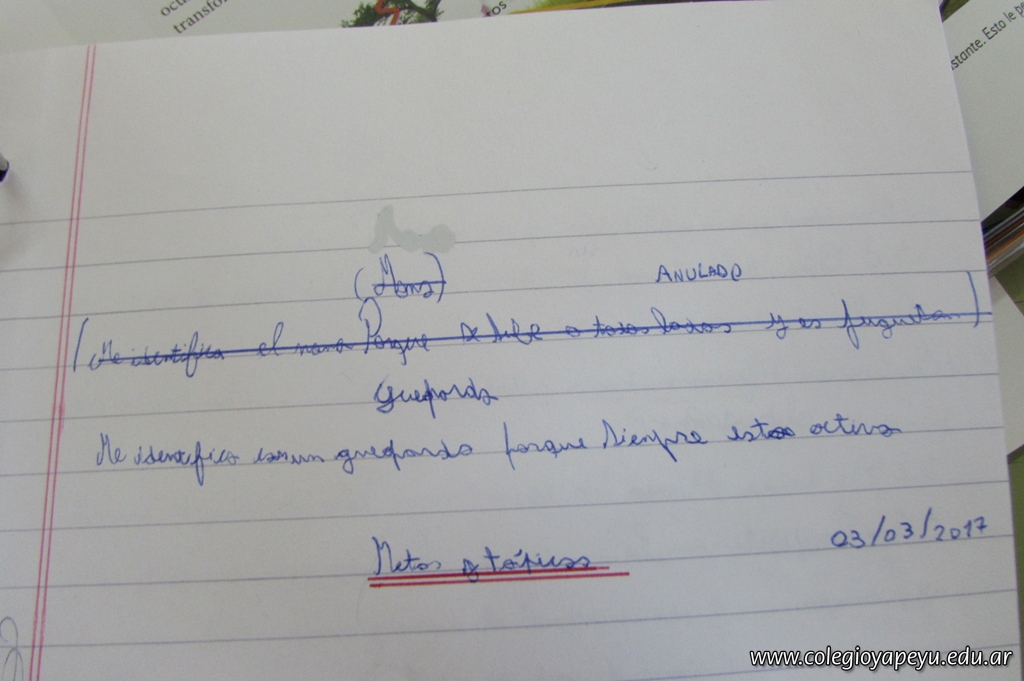 ocu
transfor
os
stante. Esto le pe
(Mono) ANULADO
(Me identifica el mono Porque se sube a todos lados y es juguetón.)
Guepardo
Me identifico con un guepardo porque siempre estoo activo
03/03/2017
Metas y tópicos
www.colegioyapeyu.edu.ar